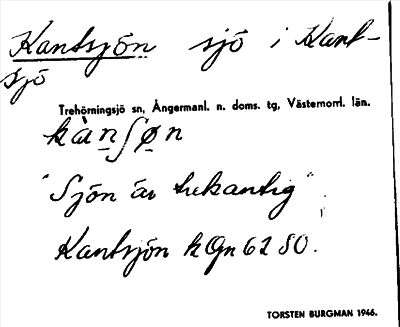 Kantsjön sjö i Kant-
sjö
Trehörningsjö sn, Ångermanl. n. doms. tg, Västernorrl. län.
kànʃøn
"Sjön är trekantig";
Kantsjön kGn 6280.
TORSTEN BURGMAN 1946.